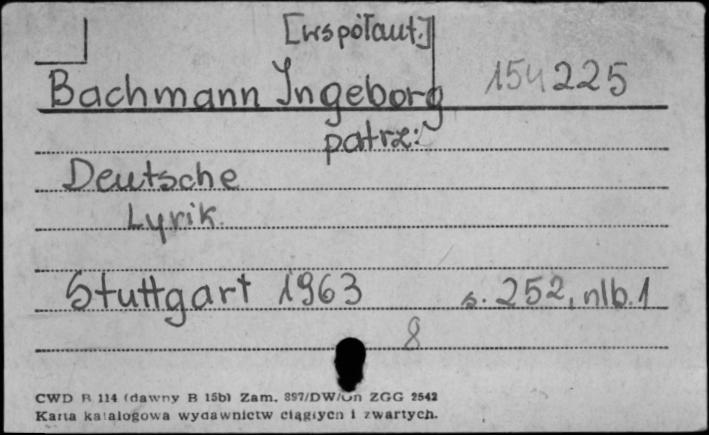 [współaut.]
Bachmann Ingeborg 154225
patrz:
Deutsche
Lyrik.
Stuttgart 1963 s. 252, nlb. 1
8
CWD B 114 (dawny B 15b) Zam. 897/DW/Un ZGG 2542
Karta katalogowa wydawnictw ciągłych i zwartych.